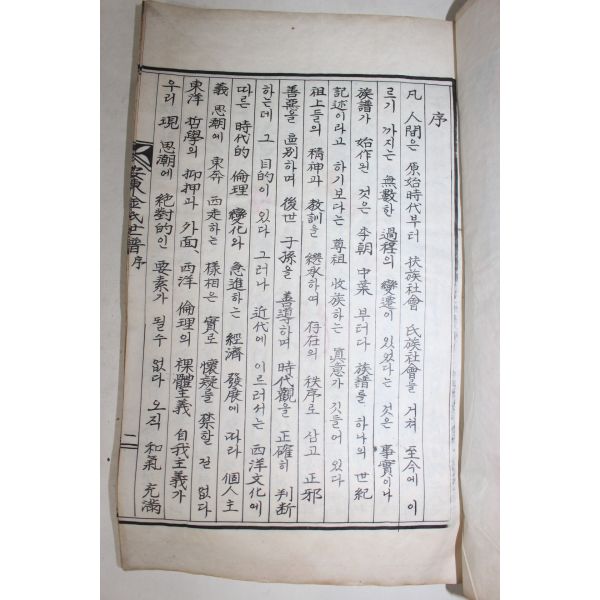 序
凡 人間은 原始時代부터 扶族社會 氏族社會을 거쳐 至今에 이
르기 까지는 無數한 過程의 變遷이 있었다는 것은 事實이나
族譜가 始作된 것은 李朝 中葉 부터다 族譜를 하나의 世紀
記述이라고 하기보다는 尊祖 收族하는 眞意가 깃들어 있다
祖上들의 精神과 教訓을 繼承하며 存在의 秩序로 삼고 正邪
善惡을 鑑別하며 後世 子孫을 善導하며 時代觀을 正確히 判断
하는데 그 目的이 있다 그러나 近代에 이르러서는 西洋文化에
따른 時代的 倫理 變化와 急進하는 經濟 發展에 따라 個人主
義 思潮에 東奔 西走하는 樣相은 實로 懷疑를 禁할 길 없다
東洋 哲學의 抑押과 外面、西洋 倫理의 裸體主義 自我主義가
우리 現 思潮에 絶對的인 要素가 될수 없다 오직 和氣 充滿
安東金氏世譜 序
二